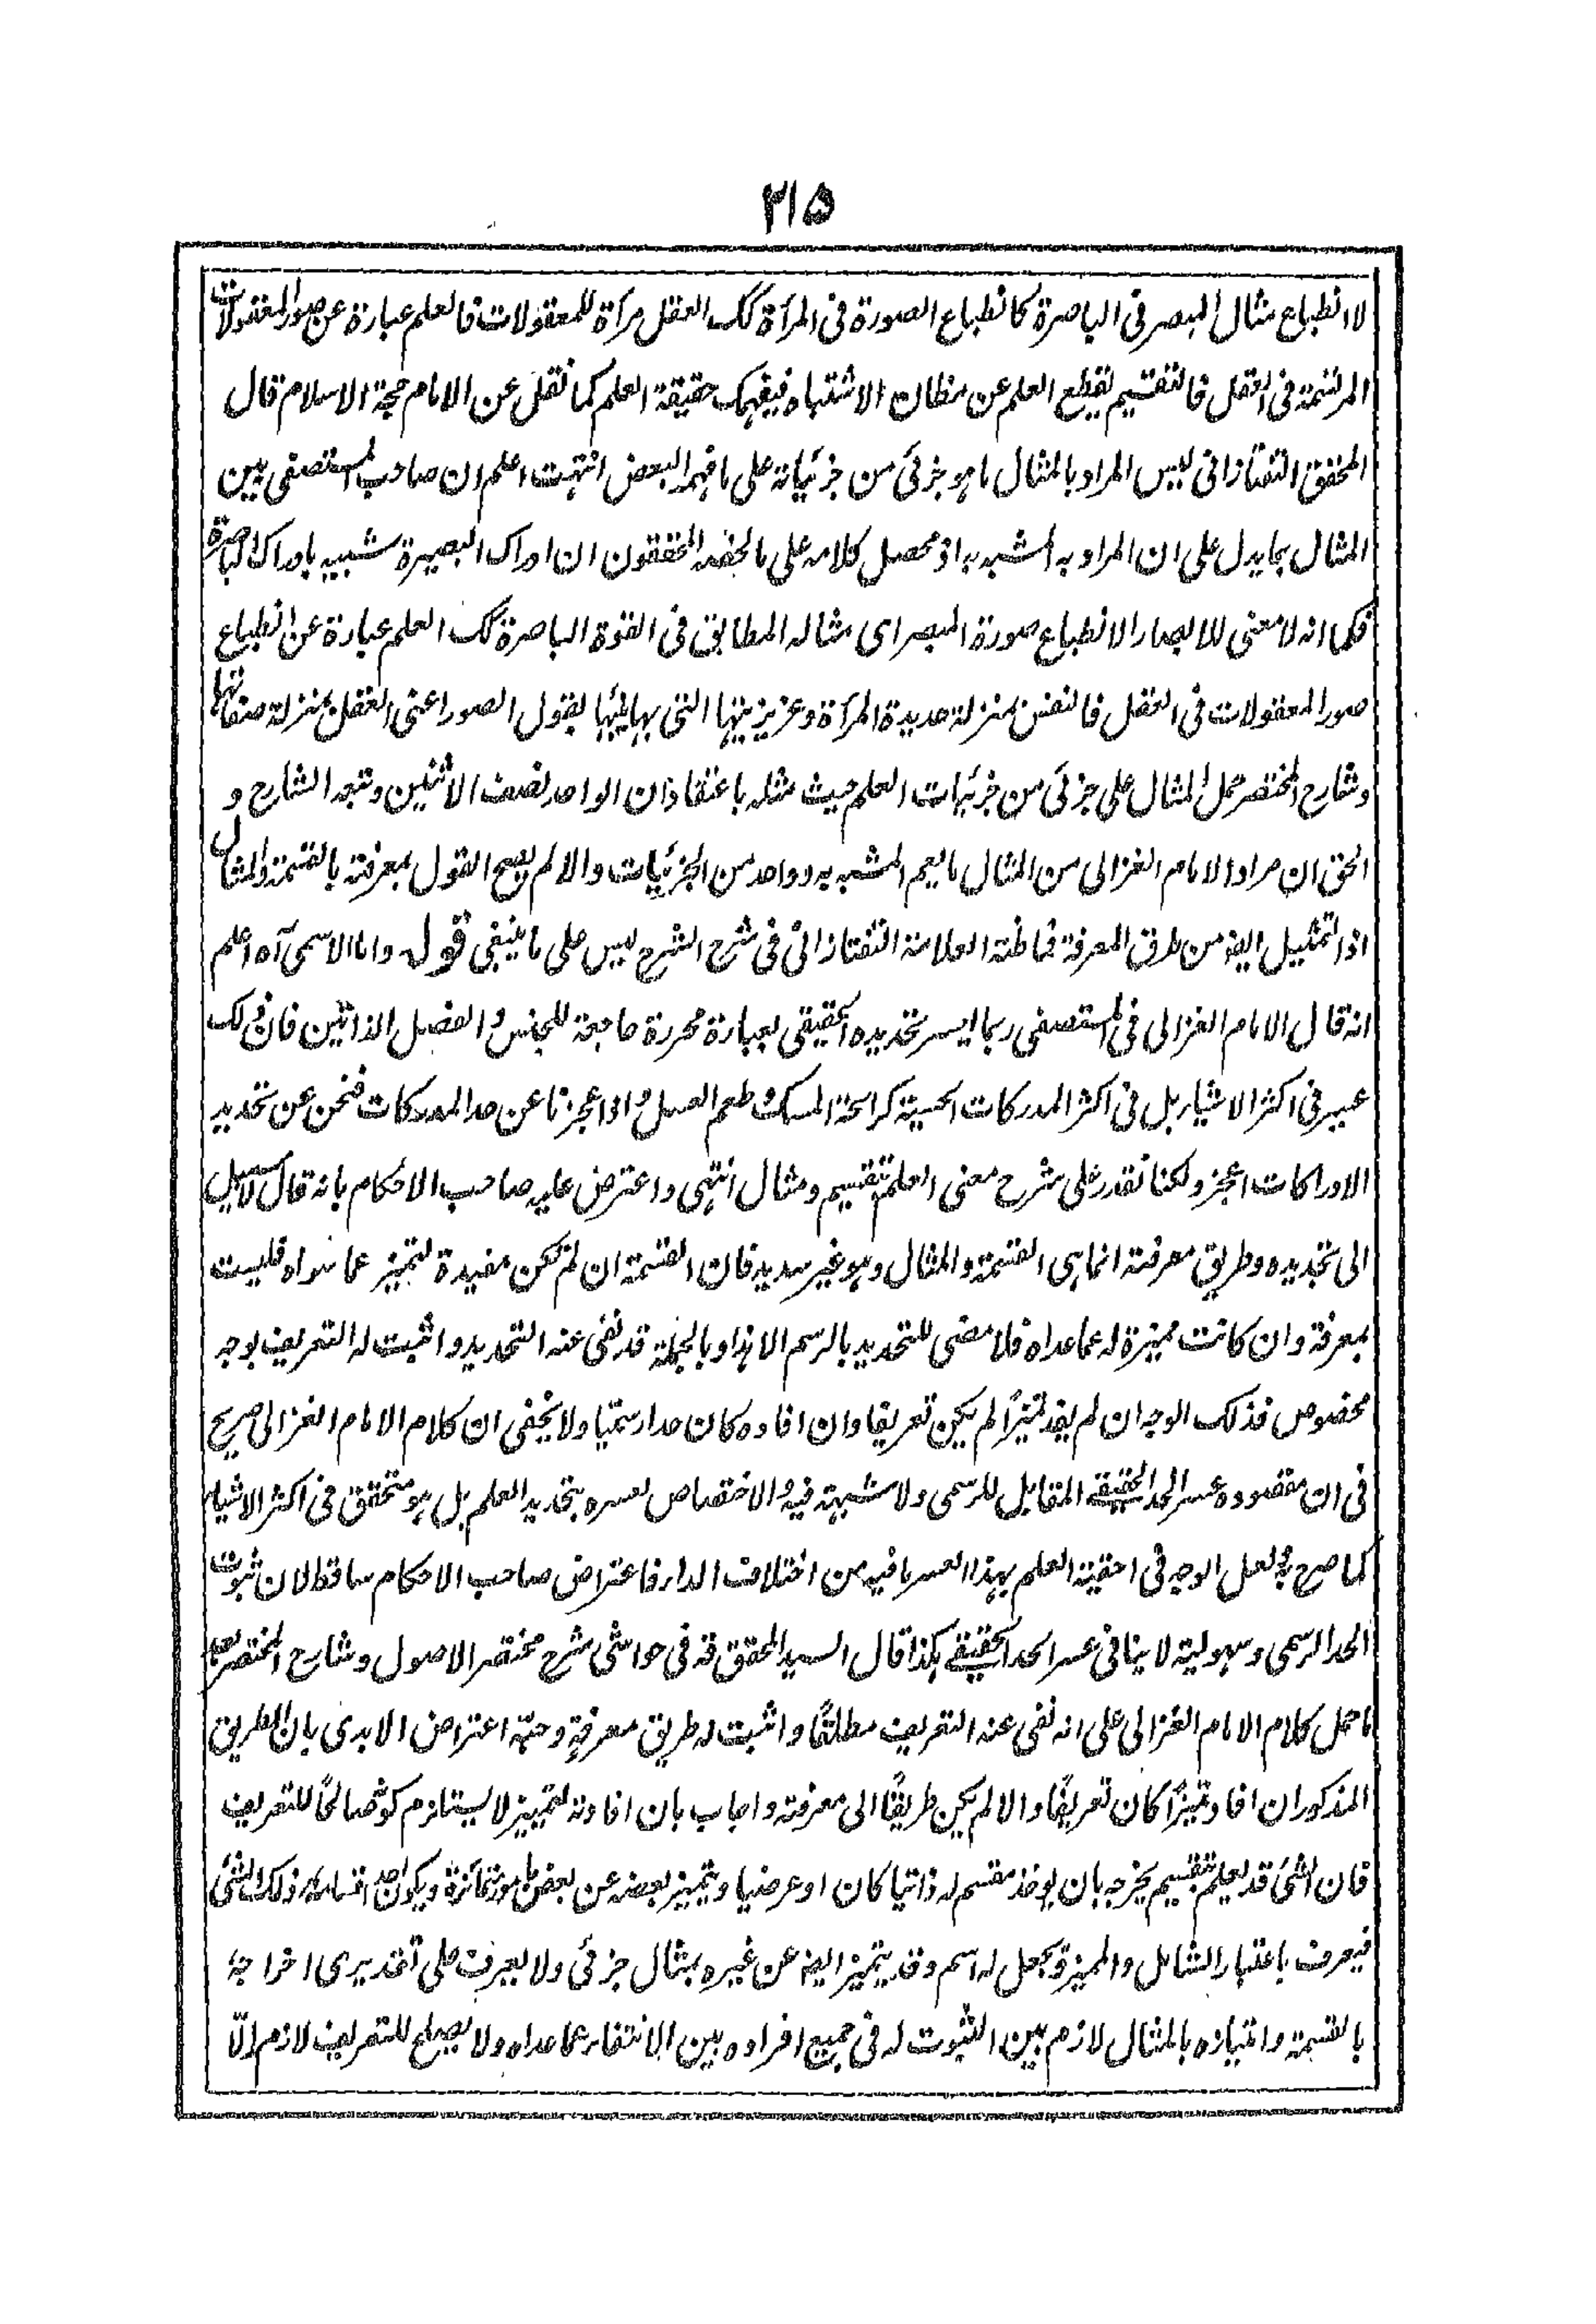 ٢١٥
لا انطباع مثال المبصر فى الباصرة كانطباع الصورة فى المرآة كك العقل مرآة للمعقولات فالعلم عبارة عن صور المعقولات
المرتسمة فى العقل فالتقسيم لقطع العلم عن مظان الاشتباه فيفهمك حقيقة العلم كما نقل عن الامام حجة الاسلام قال
المحقق التفتازانى ليس المراد بالمثال ما هو جزئى من جزئياته على ما فهمه البعض انتهت اعلم ان صاحب المستصفى بين
المثال بما يدل على ان المراد به المشبه به اذ محصل كلامه على ما لخصه المحققون ان ادراك البصيرة شبيه بادراك الباصرة
فكما انه لا معنى للابصار الا انطباع صورة المبصر اى مثاله المطابق فى القوة الباصرة كك العلم عبارة عن انطباع
صور المعقولات فى العقل فالنفس بمنزلة حديدة المرآة وغريزيتها التى بها تهيئها لقبول الصور اعنى العقل بمنزلة صقالتها
وشارح المختصر حمل المثال على جزئى من جزئيات العلم حيث مثله باعتقاد ان الواحد نصف الاثنين وتبعه الشارح و
الحق ان مراد الامام الغزالى من المثال ما يعم المشبه به وواحد من الجزئيات والا لم يصح القول بمعرفة بالقسمة والمثال
اذ التمثيل ايضا من طرق المعرفة فما ظنه العلامة التفتازانى فى شرح الشرح ليس على ما ينبغى قول واما الاسمى آه اعلم
انه قال الامام الغزالى فى المستصفى ربما ايسر تحديده الحقيقى بعبارة محررة جامعة للجنس و الفصل الذاتيين فان ذلك
عسير فى اكثر الاشياء بل فى اكثر المدركات الحسية كرائحة المسك و طعم العسل و اذا عجزنا عن حد المدركات فنحن عن تحديد
الادراكات اعجز ولكنا نقدر على شرح معنى العلم بتقسيم ومثال انتهى واعترض عليه صاحب الاحكام بانه قال لا سبيل
الى تحديده وطريق معرفته انما هى القسمة والمثال وهو غير سديد فان القسمة ان لم تكن مفيدة لتمييز عما سواه فليست
بمعرفة وان كانت مميزة له عما عداه فلا معنى للتحديد بالرسم الا هذا وبالجملة قد نفى عنه التحديد و اثبت له التعريف بوجه
مخصوص فذلك الوجه ان لم يفد تميزاً لم يكن تعريفا وان افاده كان حدا رسميا ولا يخفى ان كلام الامام الغزالى صريح
فى ان مقصوده عسر الحد الحقيقى المقابل للرسمى ولا شبهة فيه و الاختصاص لعسره بتحديد العلم بل هو متحقق فى اكثر الاشياء
كما صرح به لعل الوجه فى احقية العلم بهذا العسر ما فيه من اختلاف الدار فاعتراض صاحب الاحكام ساقط لان ثبوت
الحد الرسمى وسهوليته لا ينافى عسر الحد الحقيقى هكذا قال السيد المحقق قه فى حواشى شرح مختصر الاصول وشارح المختصر لما
ما حمل كلام الامام الغزالى على انه نفى عنه التعريف مطلقاً واثبت له طريق معرفةٍ وجّه اعتراض الآمدى بان الطريق
المذكور ان افاد تميزاً كان تعريفاً والا لم يكن طريقاً الى معرفته واجاب بان افادته لتمييز لا يستلزم كونه صالحاً للتعريف
فان الشئ قد يعلم بتقسيم يخرجه بان يوخذ مقسم له ذاتيا كان او عرضيا ويتميز بعضه عن بعض بامور متمائزة ويكون احد اقسامه ذلك الشئ
فيعرف باعتبار الشامل والمميز ويجعل له اسم وقد يتميز ايضا عن غيره بمثال جزئى ولا يعرف على تقديرى اخراجه
بالقسمة وامتيازه بالمثال لازم بين الثبوت له فى جميع افراده بين الانتفاء عما عداه ولا يصلح للتعريف لازم الّا